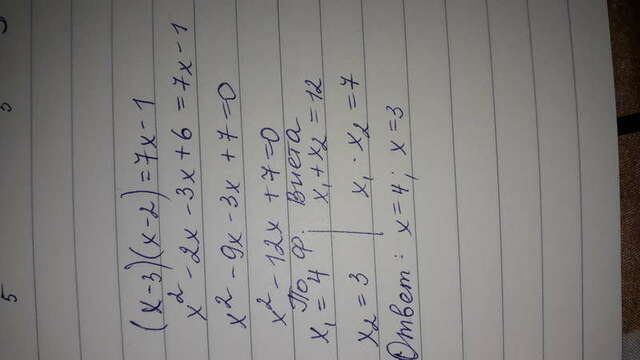 (x-3)(x-2)=7x-1
x²-2x-3x+6=7x-1
x²-9x-3x+7=0
x²-12x+7=0
По ф. Виета
x₁=4 | x₁+x₂=12
x₂=3 | x₁·x₂=7
Ответ: x=4; x=3